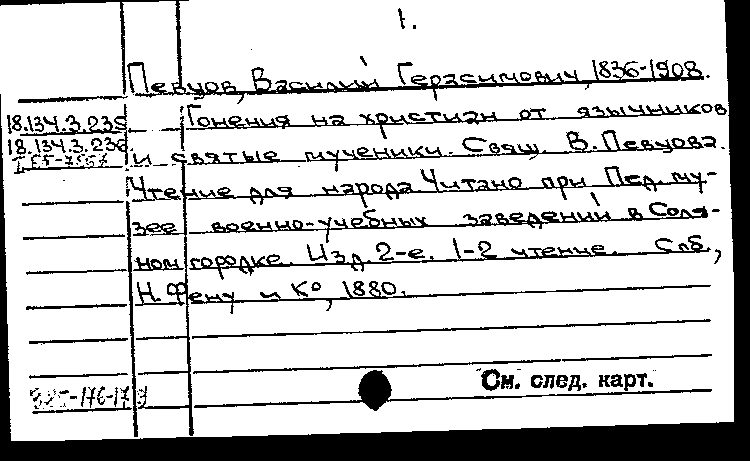 1.
Певцов, Василий Герасимович, 1836-1908.
18.134.3.235 Гонения на христиан от язычников
18.134.3.236 и святые мученики. Свящ. В. Певцова.
Чтение для народа Читано при Пед. му-
зее военно-учебных заведений в Соля-
ном городке. Изд. 2-е. 1-2 чтение. Спб.,
Н. Фену и К°, 1880.
См. след. карт.